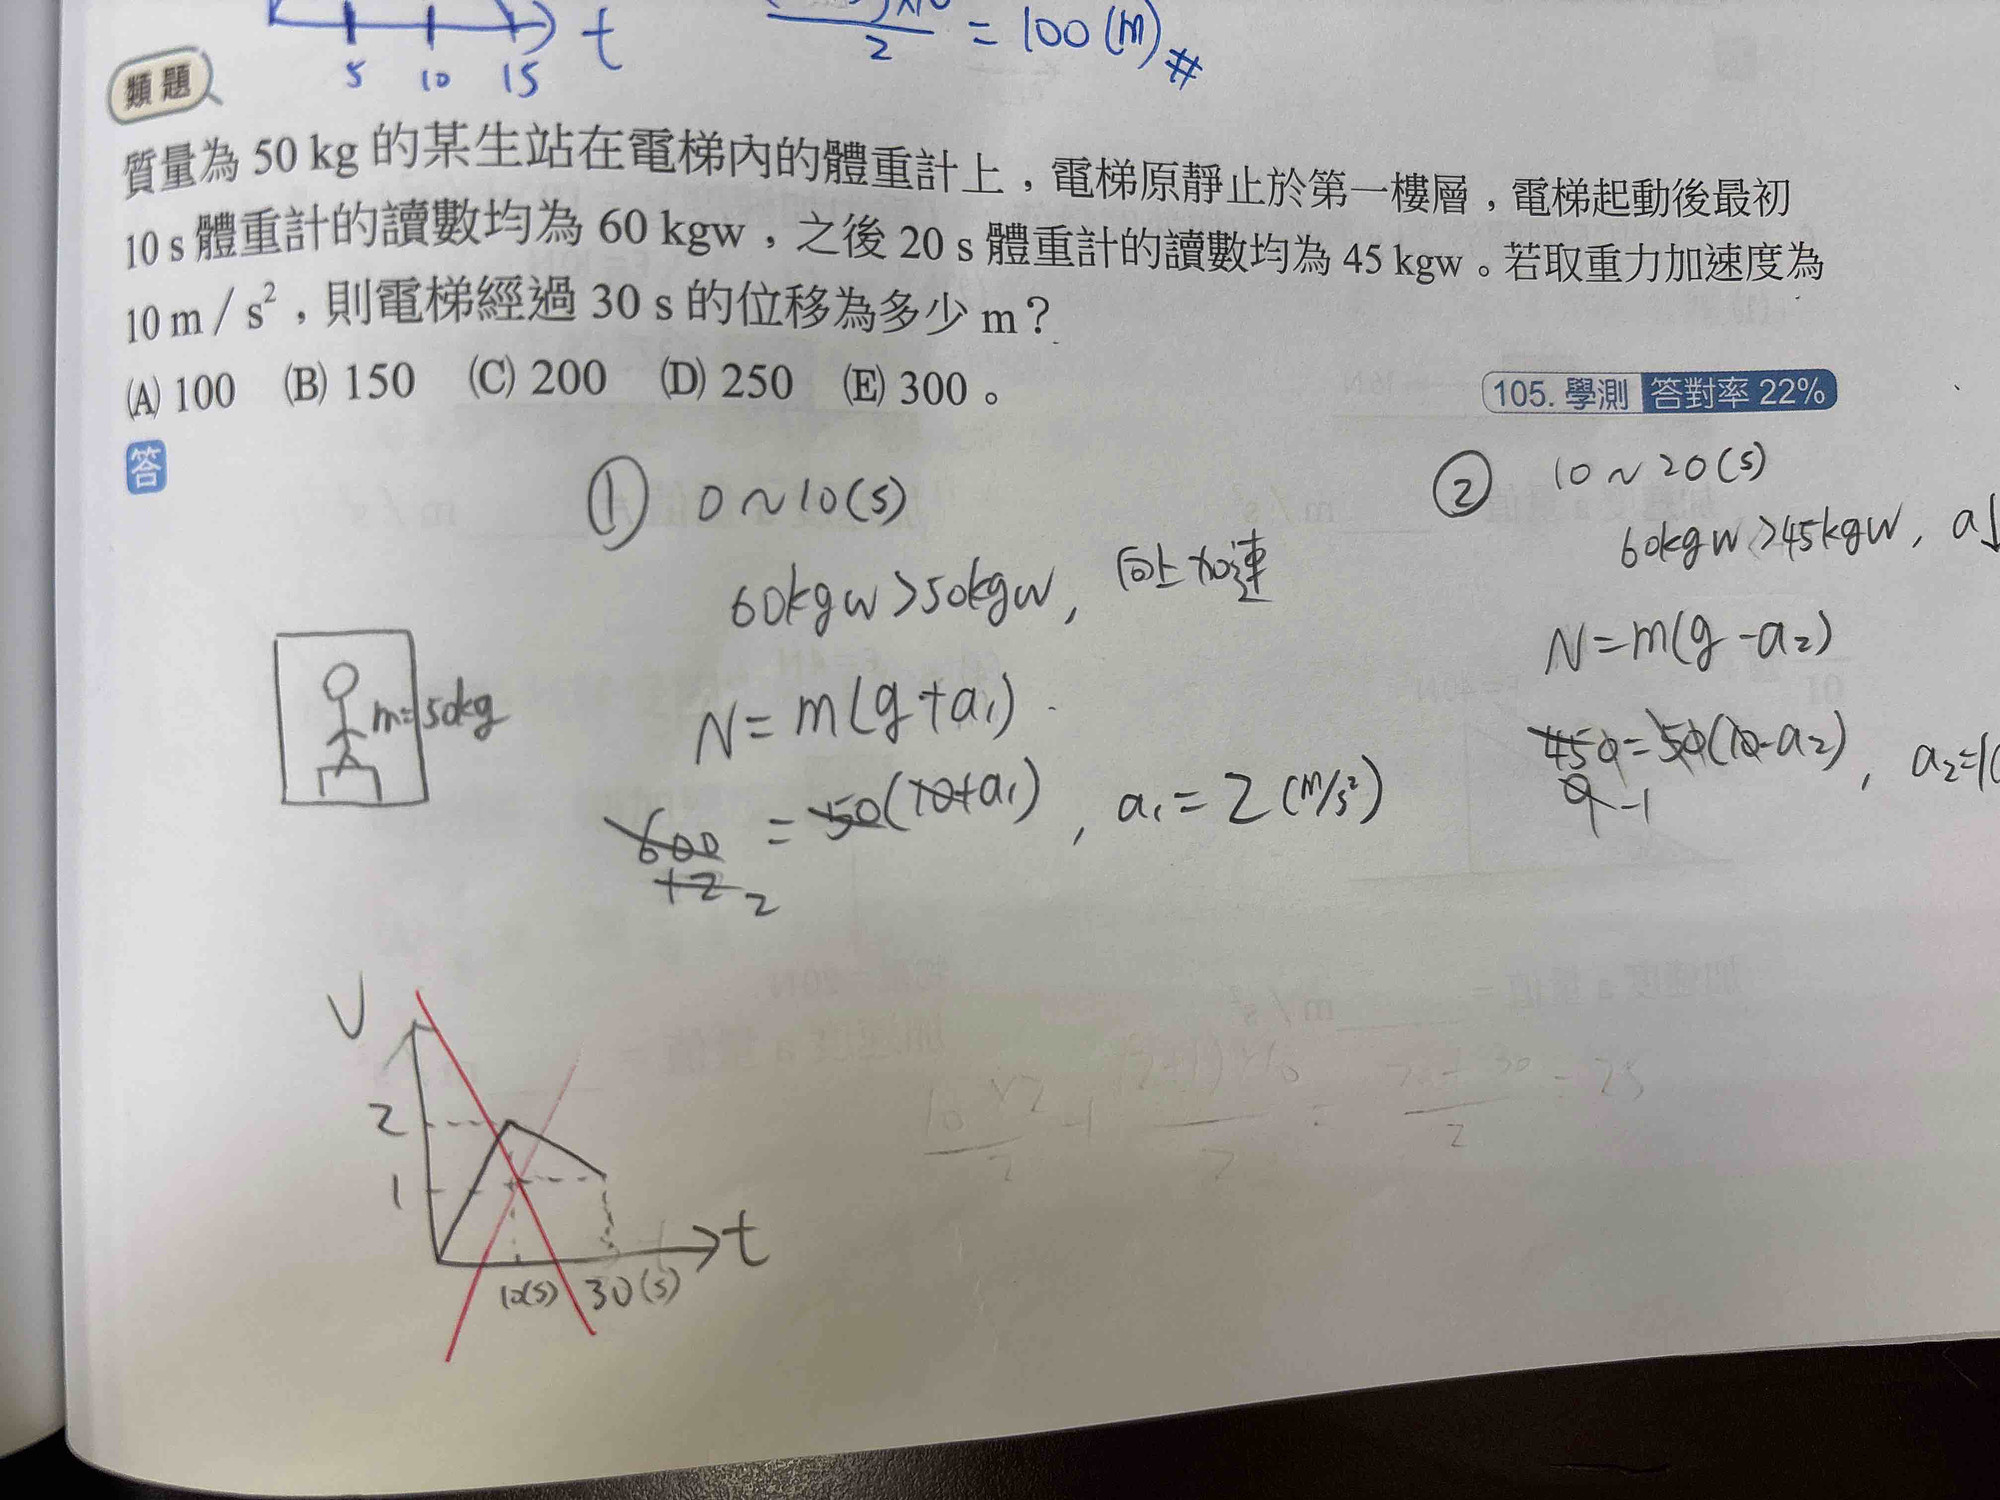 5 10 15 t
2 = 100 (m) #
類題
質量為 50 kg 的某生站在電梯內的體重計上，電梯原靜止於第一樓層，電梯起動後最初
10 s 體重計的讀數均為 60 kgw，之後 20 s 體重計的讀數均為 45 kgw。若取重力加速度為
10 m / s²，則電梯經過 30 s 的位移為多少 m？
(A) 100 (B) 150 (C) 200 (D) 250 (E) 300。
105. 學測 答對率 22%
答
① 0 ~ 10 (s)
60kgw > 50kgw, 向上加速
N = m(g + a₁)
600 = 50(10 + a₁), a₁ = 2 (m/s²)
+2 2
② 10 ~ 20 (s)
60kgw > 45kgw, a↓
N = m(g - a₂)
450 = 50(10 - a₂), a₂ = 10
9 -1
m = 50kg
V
2
1
10(s) 30(s) t